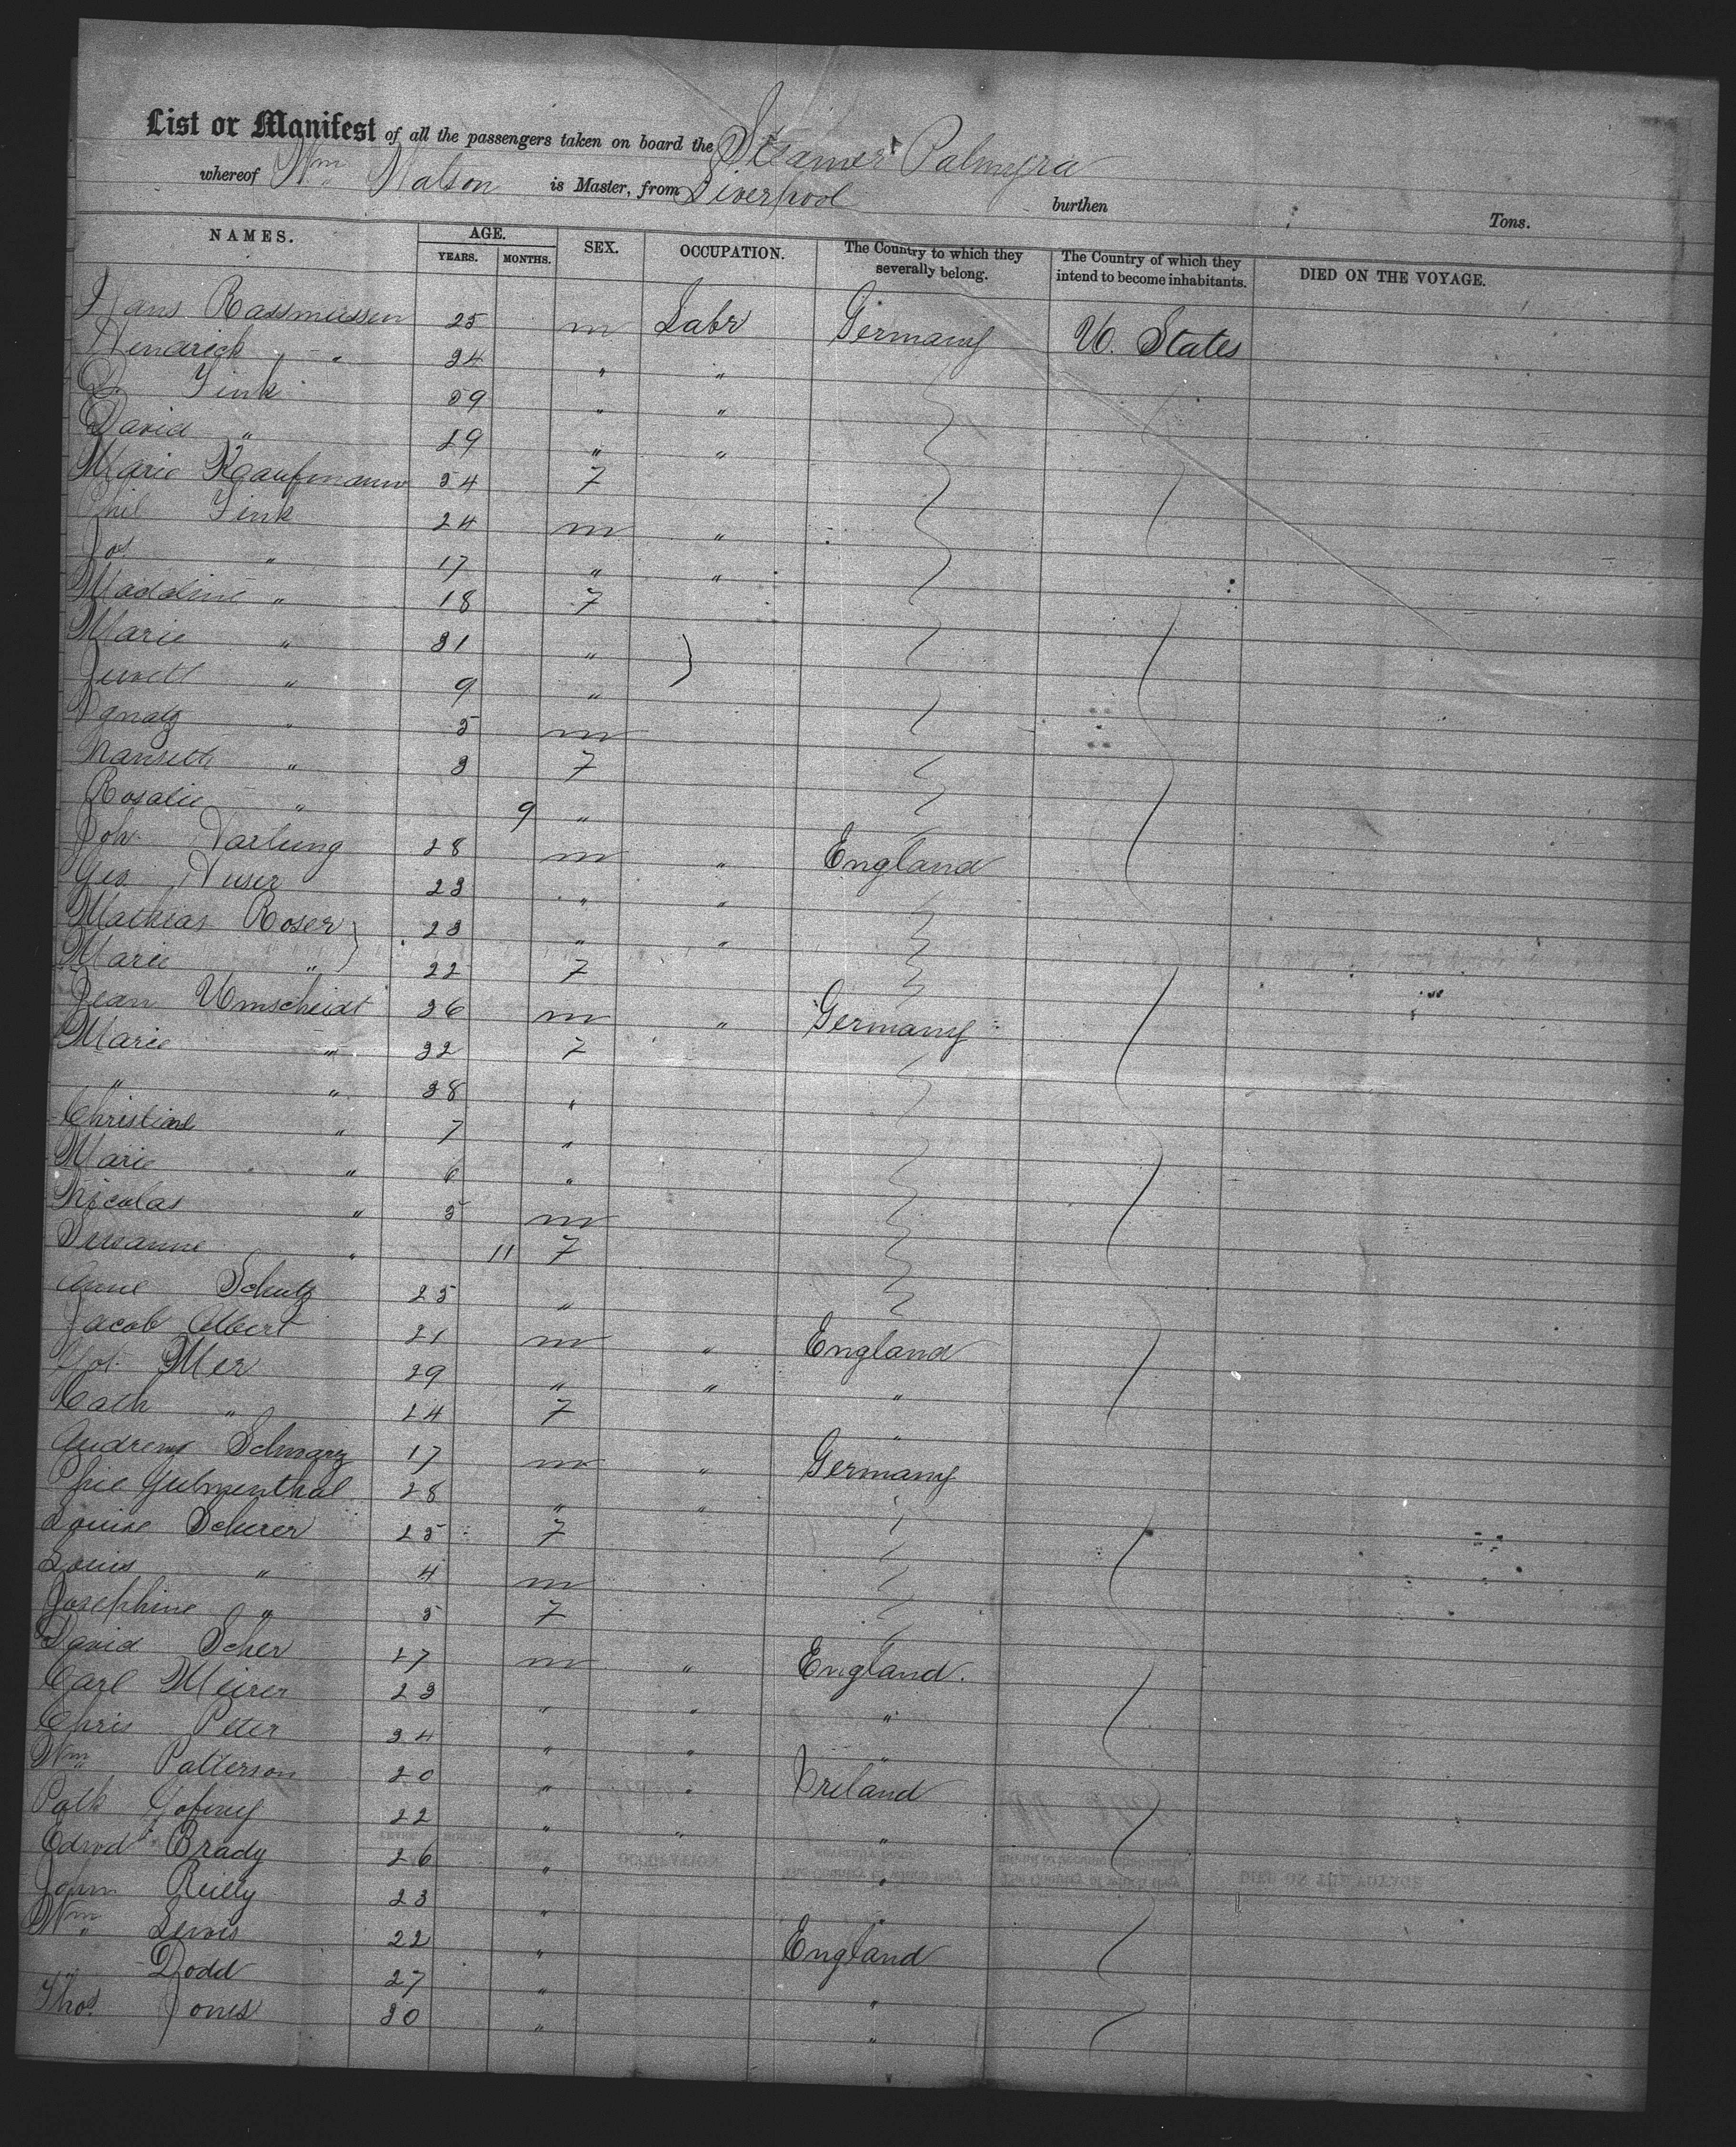 List or Manifest of all the passengers taken on board the Steamer Palmyra
whereof Wm Watson is Master, from Liverpool burthen Tons.
NAMES. AGE. YEARS. MONTHS. SEX. OCCUPATION. The Country to which they severally belong. The Country of which they intend to become inhabitants. DIED ON THE VOYAGE.
Hans Rassmussen 25 m Labr Germany U. States
Hendrick " 24 " "
D. Fink 59 " "
David " 29 " "
Marie Kaufmann 24 F
Phil Fink 24 m "
Jos " 17 " "
Maddline " 18 F
Marie " 31 "
" 9 "
Ignatz " 5 m
" 3 F
Rosalie " 9 "
Joh Darlung 28 m " England
Geo 23 " "
Mathias Roser 23 " "
Marie " 22 F
Jean Umscheidt 36 m " Germany
Marie " 32 F
" " 38 "
Christine " 7 "
Marie " 6 "
Nicolas " 5 m
Susanne " 11 F
Anne Schutz 25 "
Jacob Albert 21 m " England
Mer 29 " " "
Cath " 24 F "
Andrew Schwarz 17 m " Germany
28 " "
Louise Scherer 25 F
Louis " 4 m
Josephine " 5 F
David Scher 27 m " England.
Carl Meirer 23 " " "
Chris Peter 34 " " "
Wm Patterson 20 " " Ireland
Patk 22 " " "
Edwd Brady 26 " "
John Reilly 23 " "
Wm Lewis 22 " England
" Dodd 27 " "
Thos. Jones 30 " "